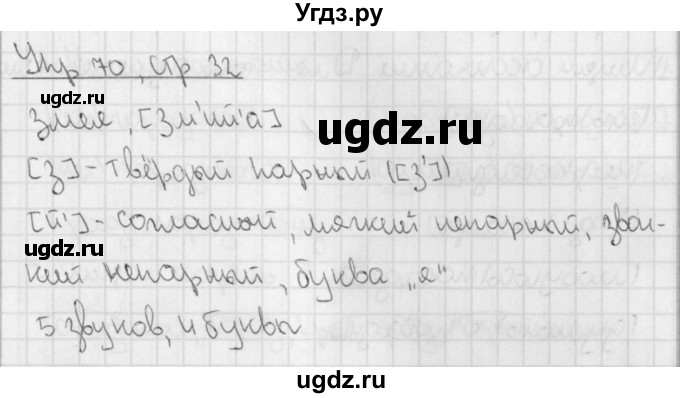 Угдз.ру
Упр 70, стр 32
ugdz.ru
змея, [зм'ий'а]
ugdz.ru
[з] - твёрдый парный ([з'])
[й'] - согласный, мягкий непарный, звон-
ugdz.ru
ugdz.ru
кий непарный, буква „я“
5 звуков, 4 буквы
ugdz.ru
ugdz.ru